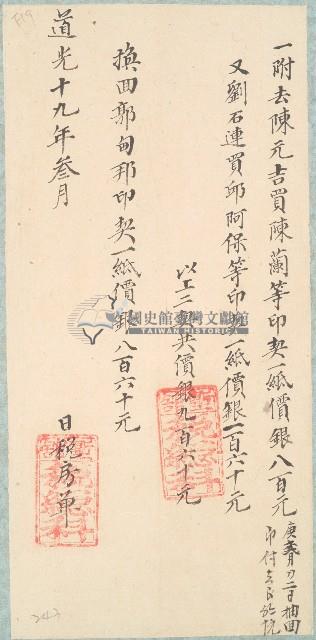 一附去陳元吉買陳蘭等印契一紙價銀八百元
又劉石連買邱阿保等印契一紙價銀一百六十元
以上二契共價銀九百六十元
換回郭甸邦印契一紙價銀八百六十元
道光十九年叁月
日稅房单
國史館臺灣文獻館
TAIWAN HISTORICA
F19
243